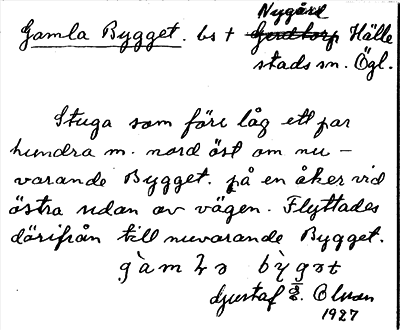 Nygård
Gamla Bygget. bs t Hälle
stads sn. Ögl.
Stuga som förr låg ett par
hundra m. nord öst om nu-
varande Bygget. på en åker vid
östra sidan av vägen. Flyttades
därifrån till nuvarande Bygget.
Gustaf Olsson
1927